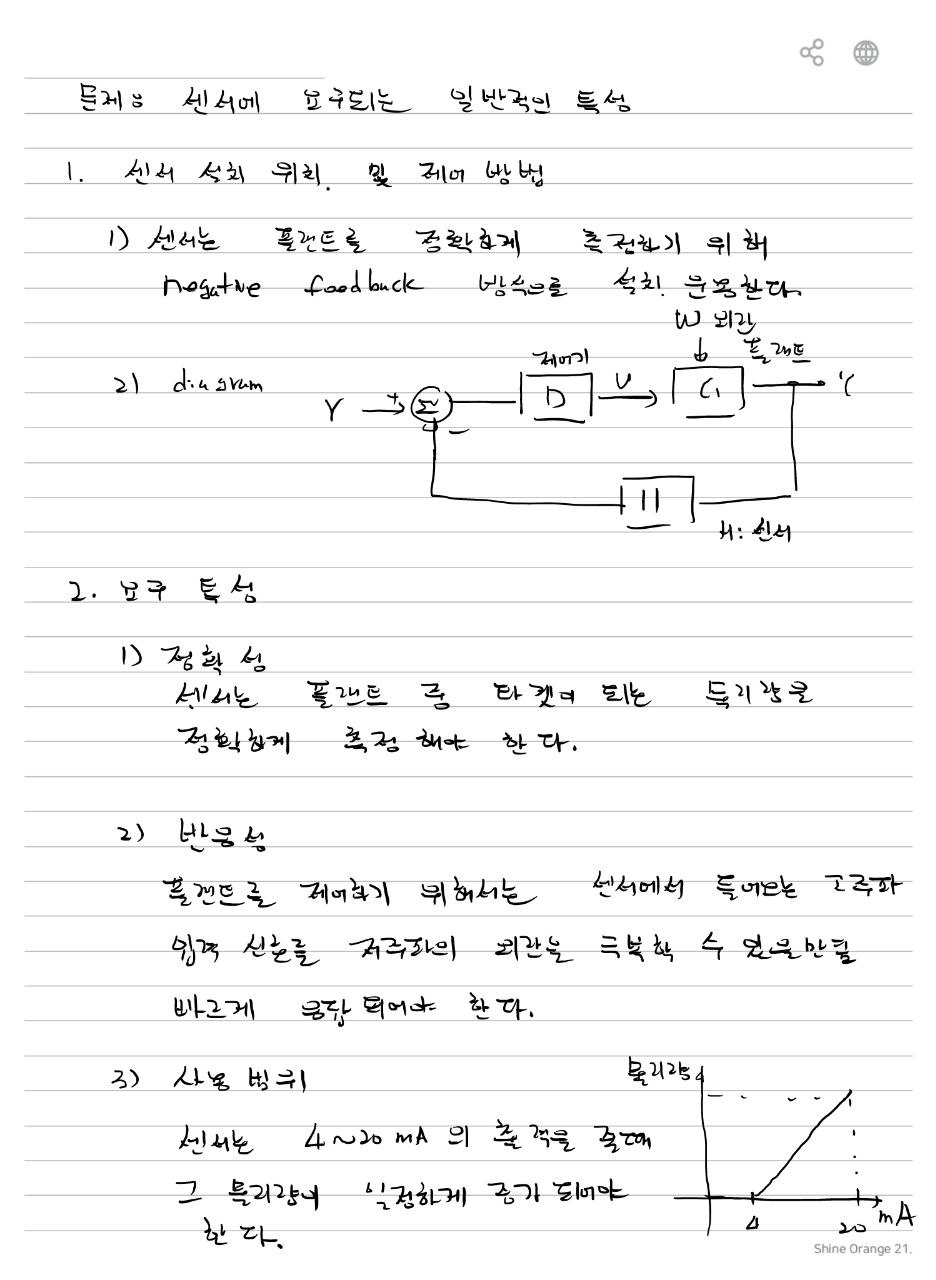 문제 : 센서에 요구되는 일반적인 특성
1. 센서 설치 위치. 및 제어 방법
1) 센서는 플랜트를 정확하게 측정하기 위해
negative feedback 방식으로 설치. 운용한다.
W 외란
2) diagram
제어기
플랜트
Y + Σ D U G Y
-
H
H: 센서
2. 요구 특성
1) 정확성
센서는 플랜트 중 타겟이 되는 물리량을
정확하게 측정해야 한다.
2) 반응성
플랜트를 제어하기 위해서는 센서에서 들어오는 고주파
입력 신호를 저주파의 외란을 극복할 수 있을만큼
빠르게 응답 되어야 한다.
3) 사용 범위
물리량
센서는 4~20 mA 의 출력을 줄때
그 물리량이 일정하게 증가 되어야
한다.
4 20 mA
Shine Orange 21.